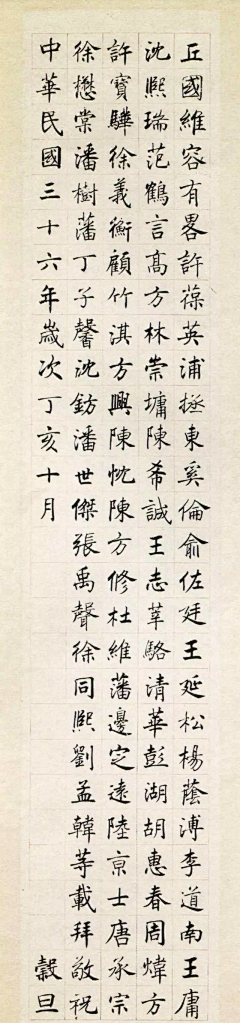 丘國維容有畧許葆英浦拯東奚倫俞佐廷王延松楊蔭溥李道南王庸
沈熙瑞范鶴言高方林崇墉陳希誠王志莘駱清華彭湖胡惠春周煒方
許寶驊徐義衡顧竹淇方興陳忱陳方修杜維藩邊定遠陸京士唐承宗
徐懋棠潘樹藩丁子馨沈鈁潘世傑張禹聲徐同熙劉孟韓等載拜敬祝
中華民國三十六年歲次丁亥十月 穀旦